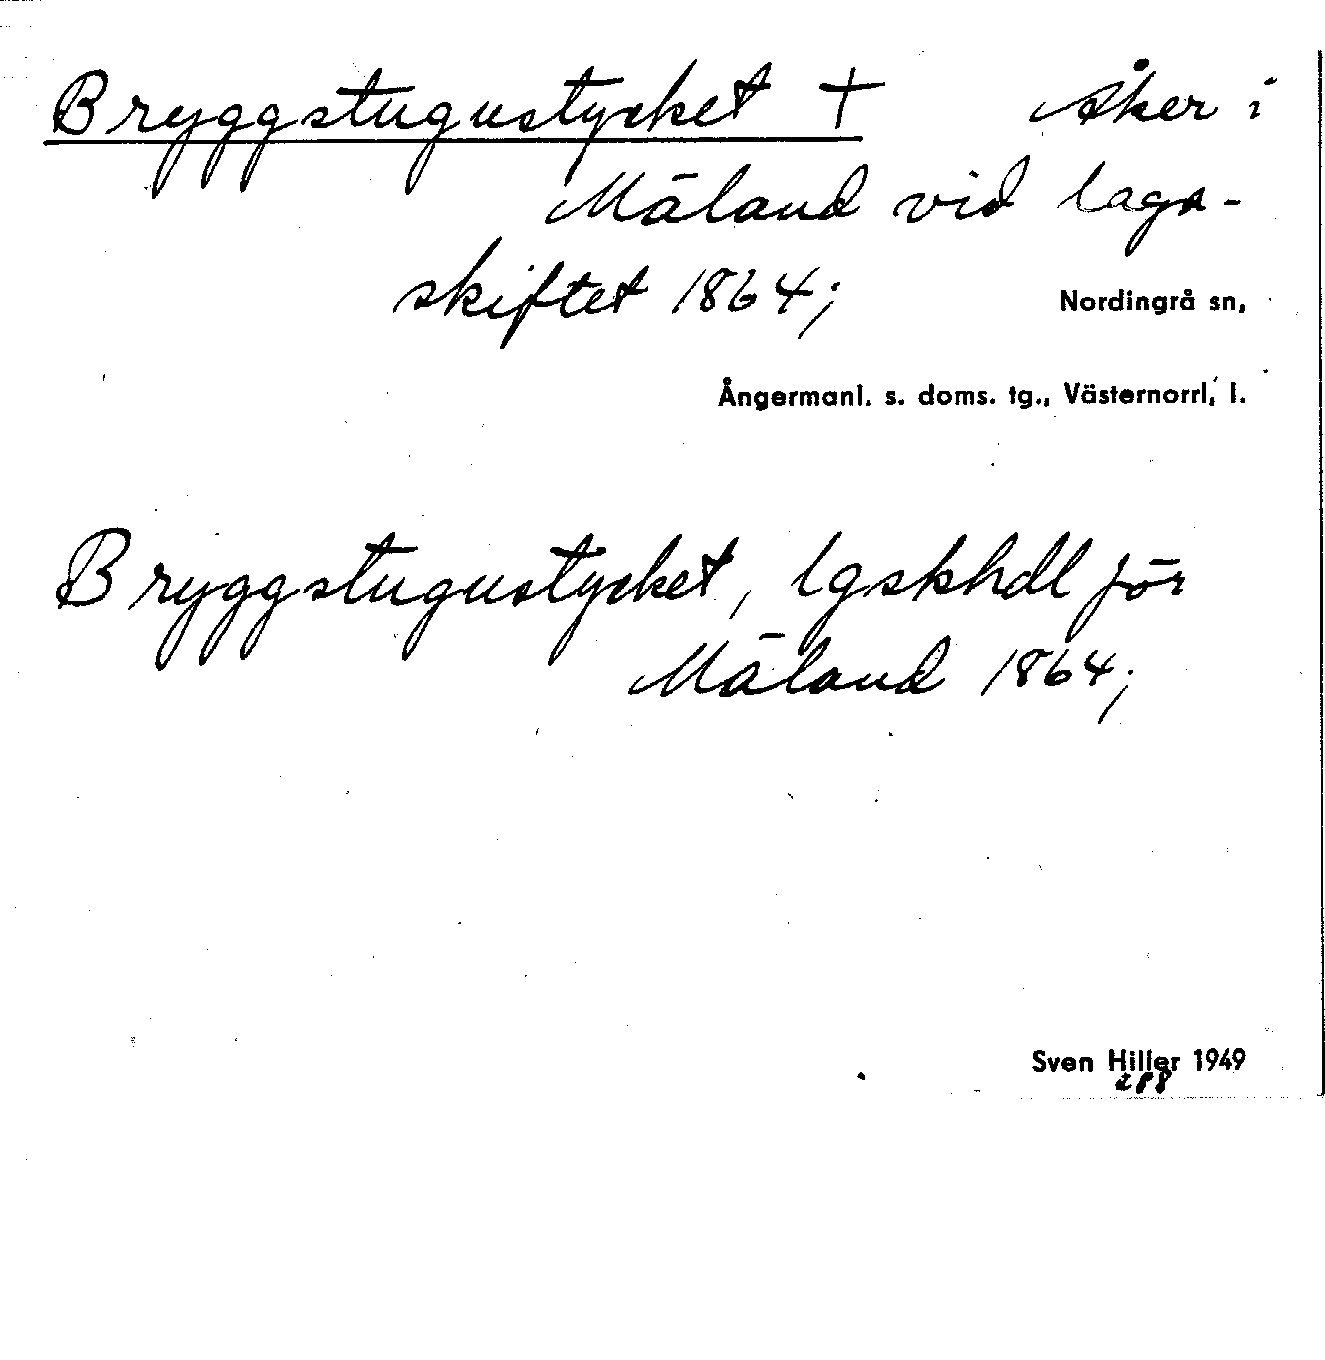 Bryggstugustycket + Åker i
Mäland vid laga-
skiftet 1864;
Nordingrå sn,
Ångermanl. s. doms. tg., Västernorrl, l.
Bryggstugustycket, lgskhdl för
Mäland 1864;
Sven Hiller 1949
288